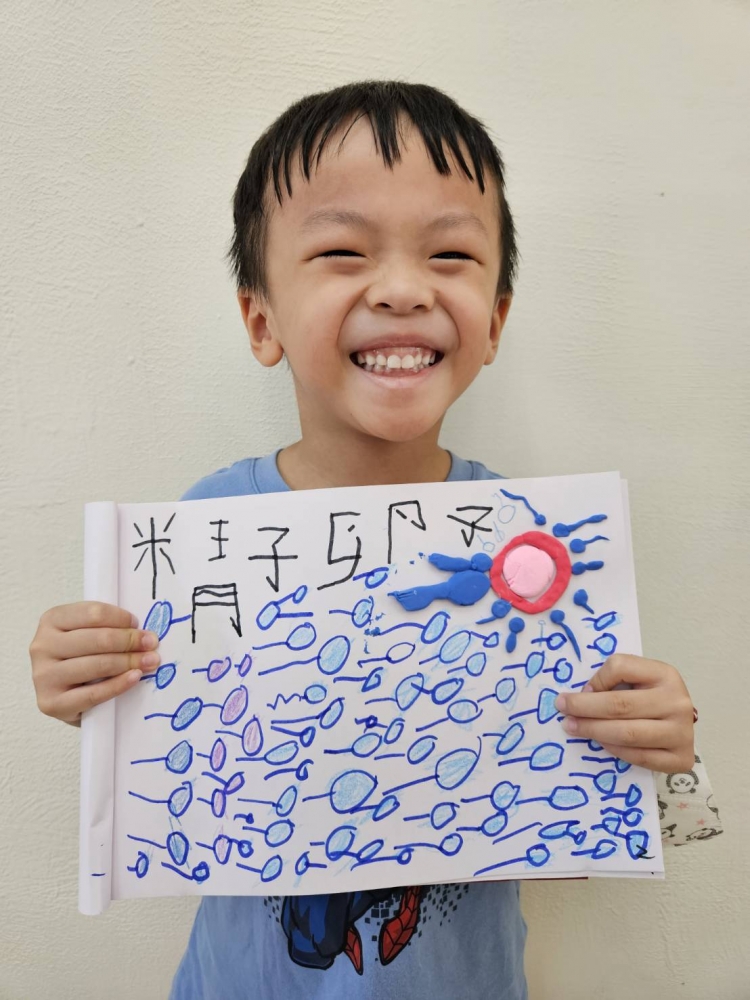 精子卵子
2